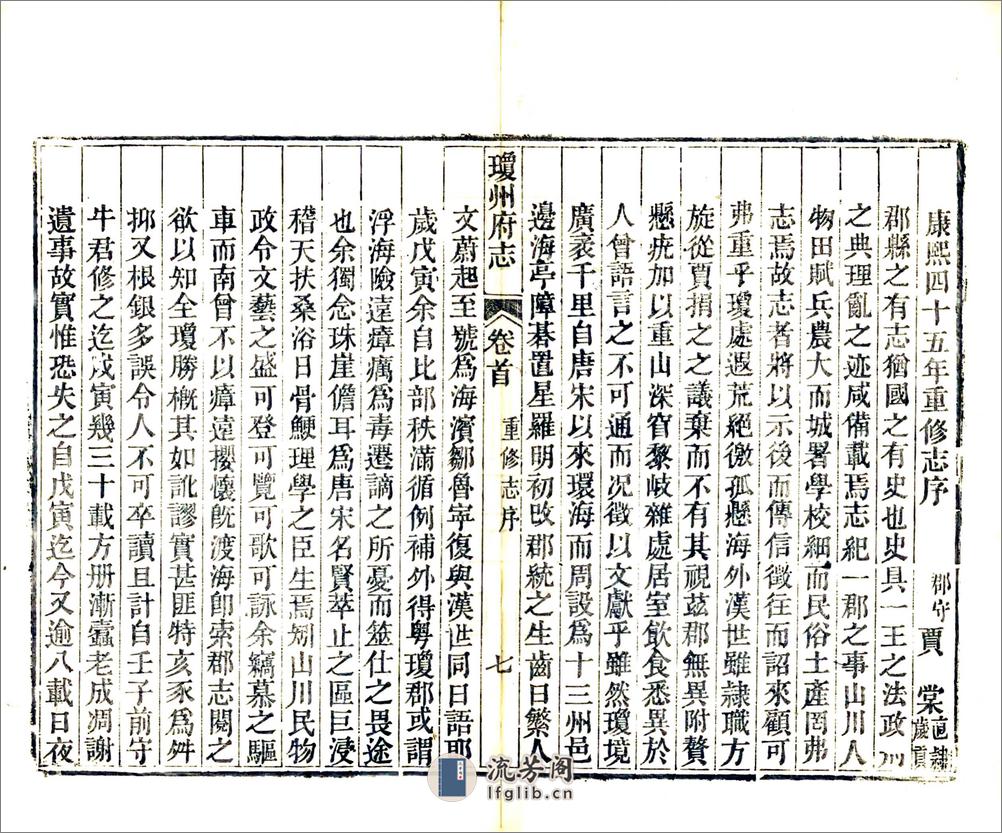 康熙四十五年重修志序 郡守賈棠直隸歲貢
郡縣之有志猶國之有史也史具一王之法政刑
之典理亂之迹咸備載焉志紀一郡之事山川人
物田賦兵農大而城署學校細而民俗土產罔弗
志焉故志者將以示後而傳信徵往而詔來顧可
弗重乎瓊處遐荒絕徼孤懸海外漢世雖隸職方
旋從賈捐之之議棄而不有其視茲郡無異附贅
懸疣加以重山深窅黎岐雜處居室飲食悉異於
人曾語言之不可通而况徵以文獻乎雖然瓊境
廣袤千里自唐宋以來環海而周設爲十三州邑
邊海亭障碁置星羅明初改郡統之生齒日繁人
瓊州府志 卷首 重修志序 七
文蔚起至號爲海濱鄒魯寧復與漢世同日語耶
歲戊寅余自比部秩滿循例補外得粵瓊郡或謂
浮海險遠瘴癘爲毒遷謫之所憂而筮仕之畏途
也余獨念珠崖儋耳爲唐宋名賢萃止之區巨浸
稽天扶桑浴日骨鯁理學之臣生焉矧山川民物
政令文藝之盛可登可覽可歌可詠余竊慕之驅
車而南曾不以瘴遠攖懷旣渡海卽索郡志閱之
欲以知全瓊勝槪其如訛謬實甚匪特亥豕爲舛
抑又根銀多誤令人不可卒讀且計自壬子前守
牛君修之迄戊寅幾三十載方册漸蠹老成凋謝
遺事故實惟恐失之自戊寅迄今又逾八載日夜
流芳阁
lfglib.cn